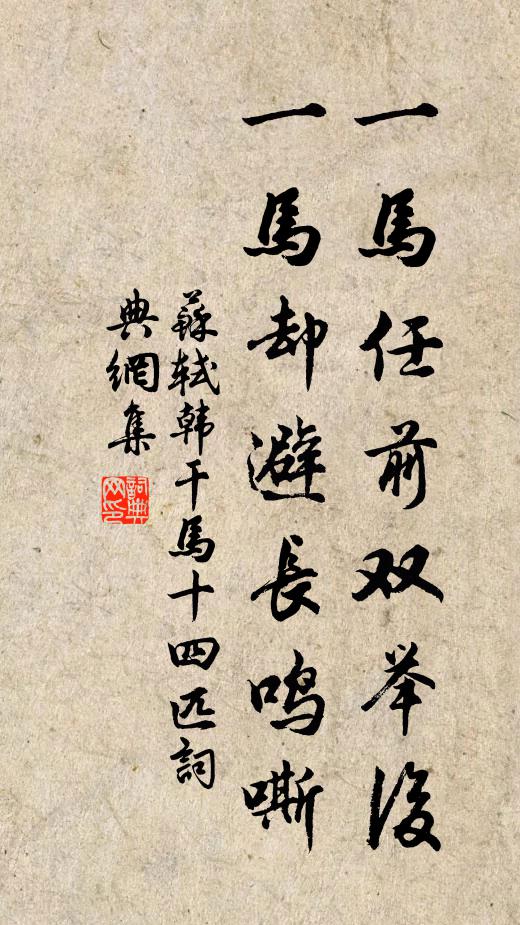 一馬任前双举後
一馬却避長鳴嘶
蘇轼韩干馬十四匹詞
典網集
詞典網印